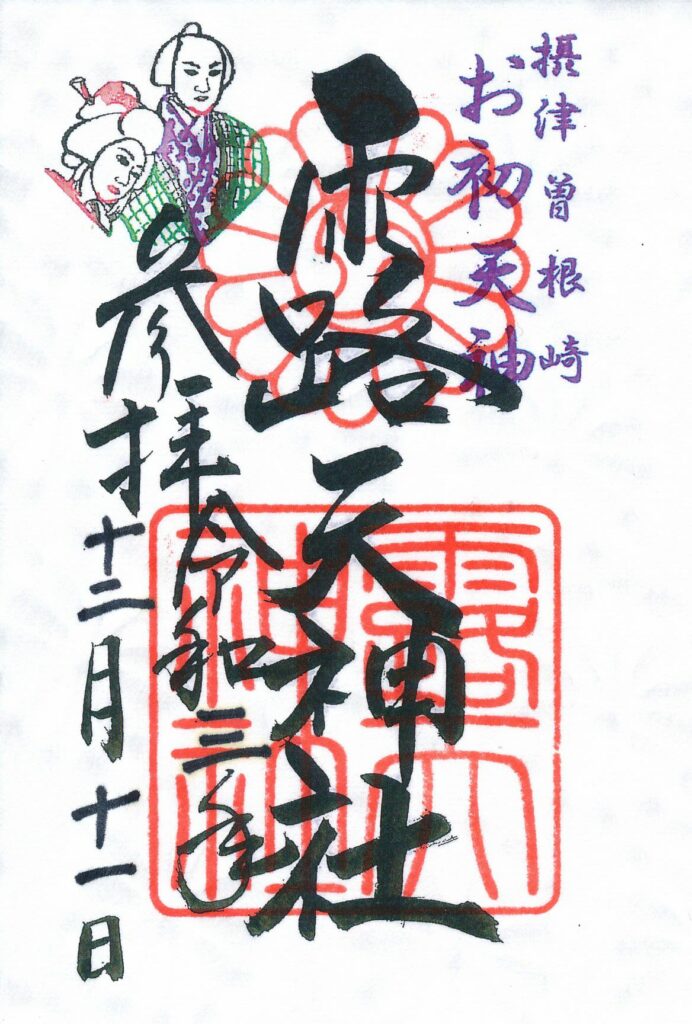 摂津曽根崎
お初天神
露天神社
参拝令和三年
十二月十一日
露天神社